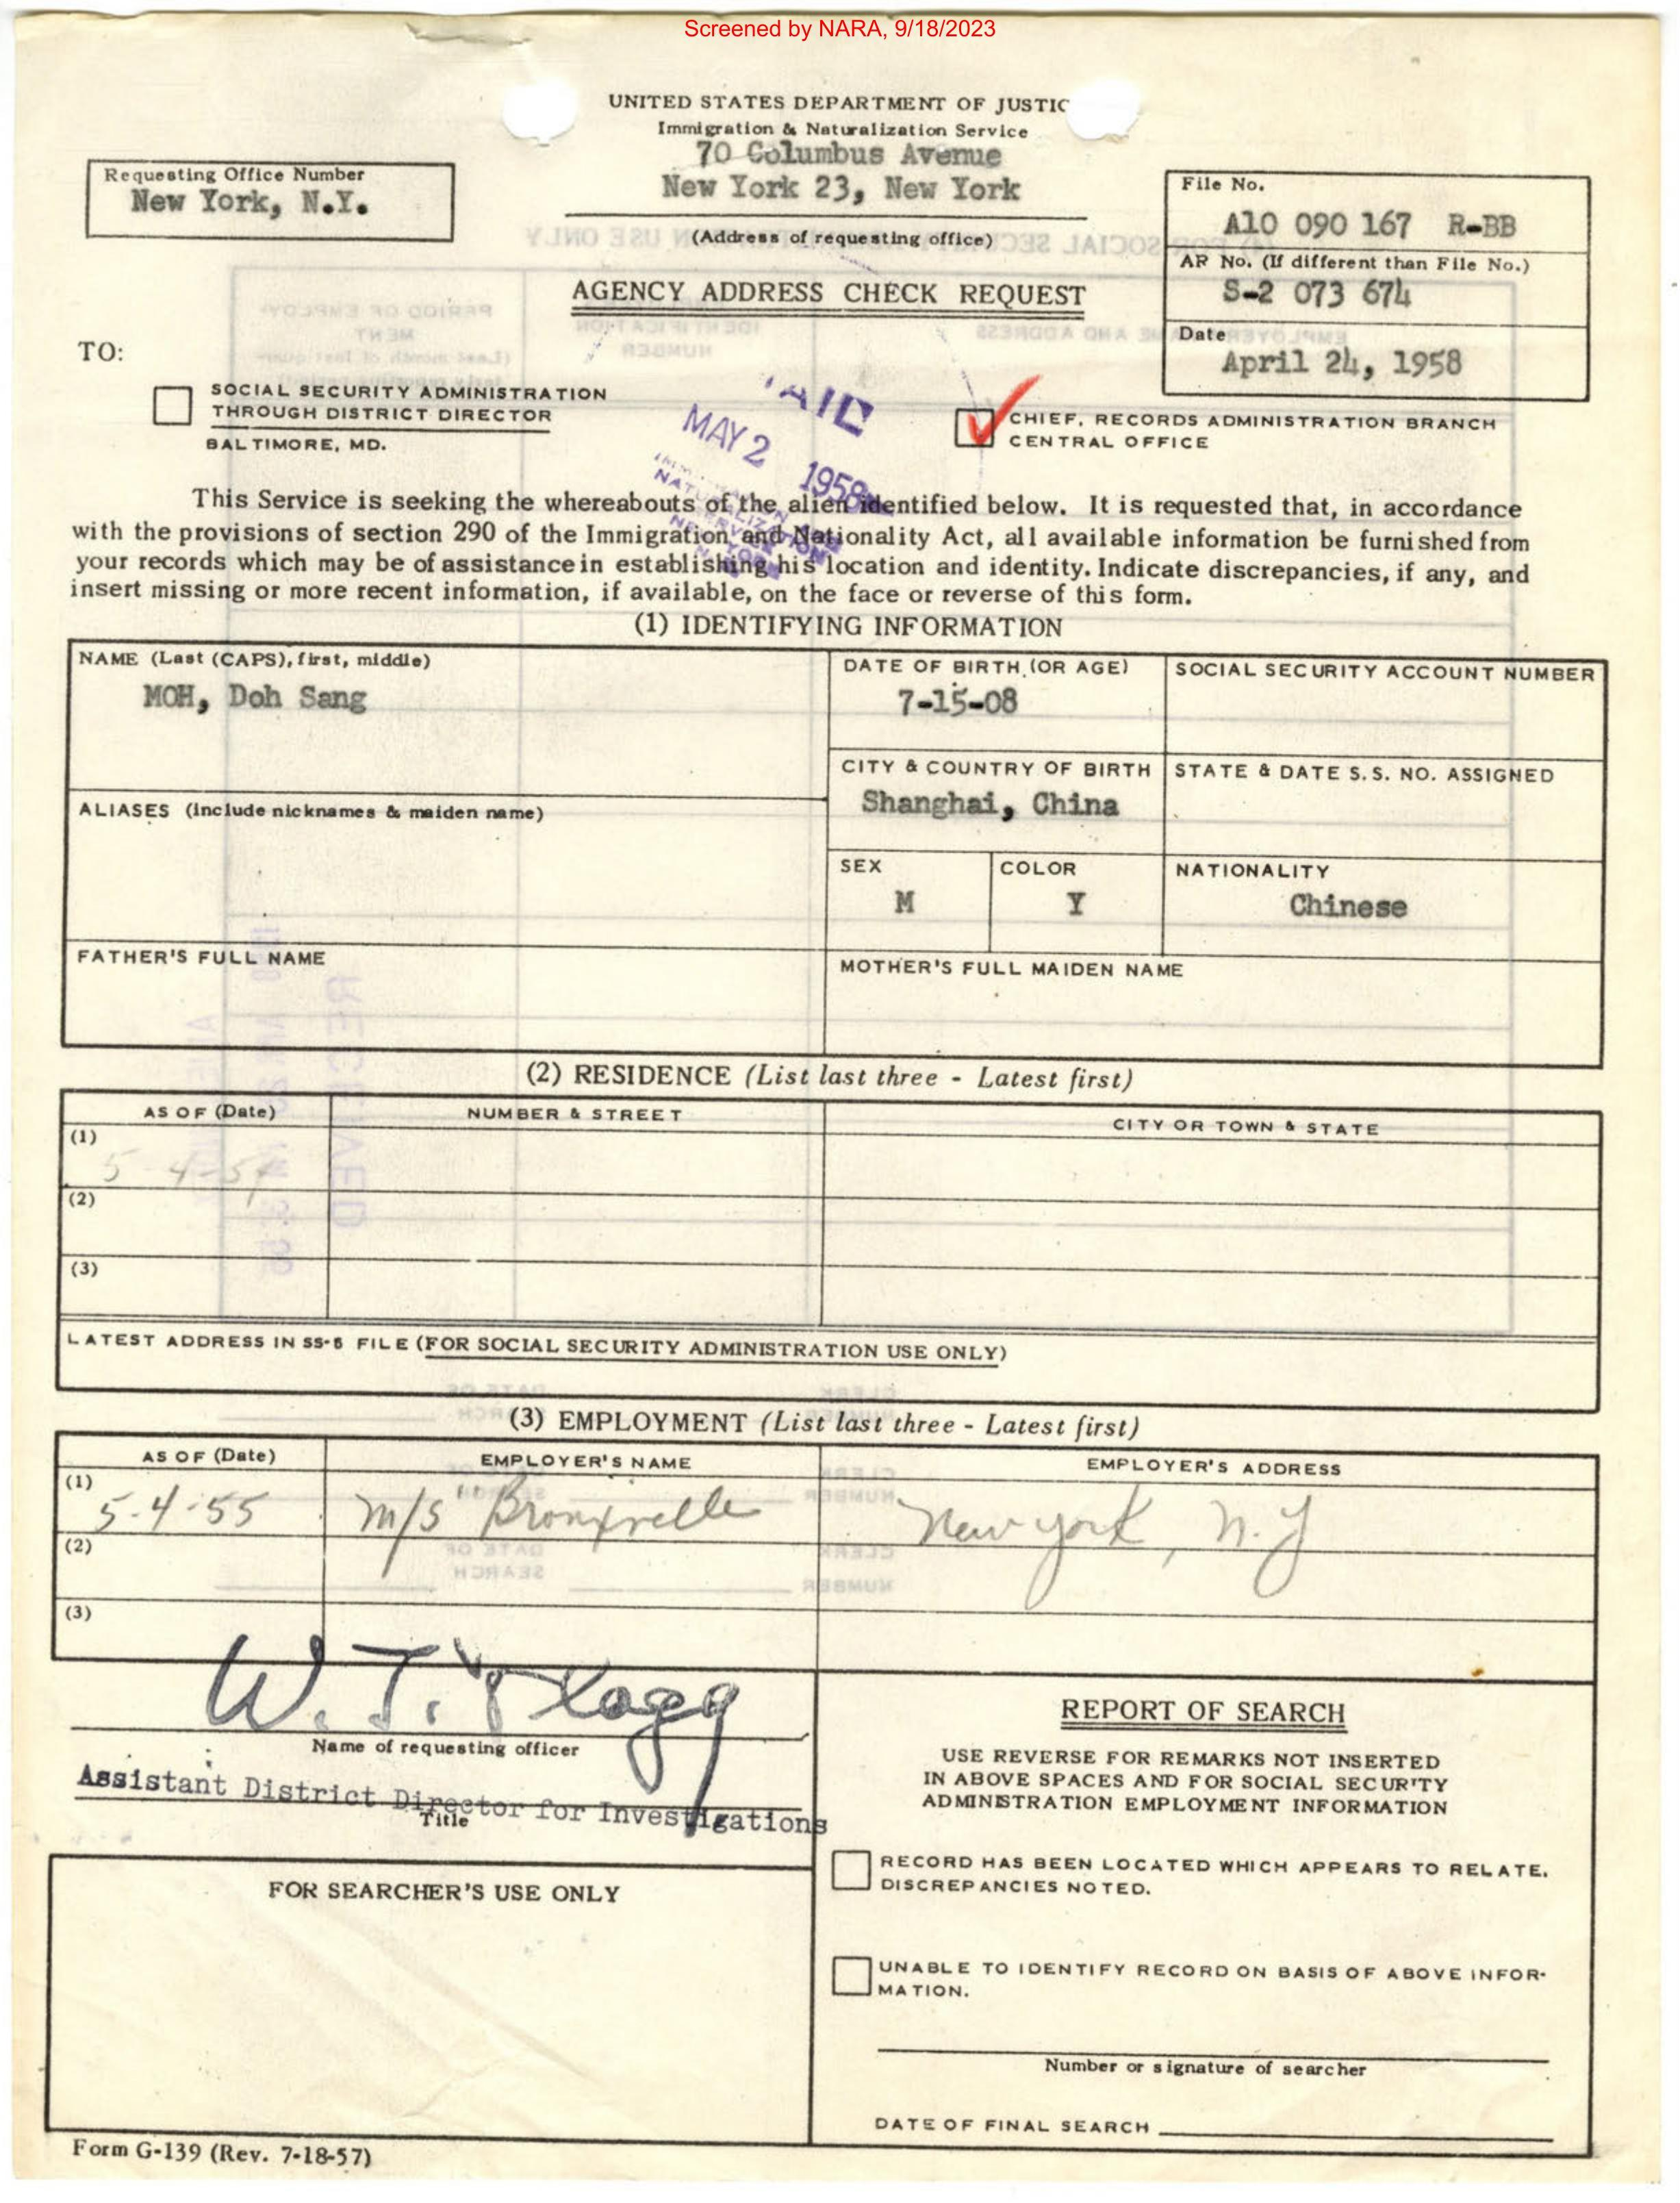 Screened by NARA, 9/18/2023
UNITED STATES DEPARTMENT OF JUSTIC
Immigration & Naturalization Service
70 Columbus Avenue
New York 23, New York
(Address of requesting office)
Requesting Office Number
New York, N.Y.
File No.
A10 090 167 R-BB
AR No. (If different than File No.)
S-2 073 674
Date
April 24, 1958
AGENCY ADDRESS CHECK REQUEST
TO:
SOCIAL SECURITY ADMINISTRATION
THROUGH DISTRICT DIRECTOR
BALTIMORE, MD.
CHIEF, RECORDS ADMINISTRATION BRANCH
CENTRAL OFFICE
MAY 2 1958
This Service is seeking the whereabouts of the alien identified below. It is requested that, in accordance
with the provisions of section 290 of the Immigration and Nationality Act, all available information be furnished from
your records which may be of assistance in establishing his location and identity. Indicate discrepancies, if any, and
insert missing or more recent information, if available, on the face or reverse of this form.
(1) IDENTIFYING INFORMATION
NAME (Last (CAPS), first, middle)
MOH, Doh Sang
DATE OF BIRTH (OR AGE)
7-15-08
SOCIAL SECURITY ACCOUNT NUMBER
CITY & COUNTRY OF BIRTH
Shanghai, China
STATE & DATE S.S. NO. ASSIGNED
ALIASES (Include nicknames & maiden name)
SEX
M
COLOR
Y
NATIONALITY
Chinese
FATHER'S FULL NAME
MOTHER'S FULL MAIDEN NAME
(2) RESIDENCE (List last three - Latest first)
AS OF (Date)
NUMBER & STREET
CITY OR TOWN & STATE
(1)
(2)
(3)
LATEST ADDRESS IN SS-5 FILE (FOR SOCIAL SECURITY ADMINISTRATION USE ONLY)
(3) EMPLOYMENT (List last three - Latest first)
AS OF (Date)
EMPLOYER'S NAME
EMPLOYER'S ADDRESS
(1)
5-4-55 M/S "Bronxville New York, N.Y
(2)
(3)
W. T. Flagg
Name of requesting officer
Assistant District Director for Investigations
Title
FOR SEARCHER'S USE ONLY
REPORT OF SEARCH
USE REVERSE FOR REMARKS NOT INSERTED
IN ABOVE SPACES AND FOR SOCIAL SECURITY
ADMINISTRATION EMPLOYMENT INFORMATION
RECORD HAS BEEN LOCATED WHICH APPEARS TO RELATE.
DISCREPANCIES NOTED.
UNABLE TO IDENTIFY RECORD ON BASIS OF ABOVE INFOR-
MATION.
Number or signature of searcher
DATE OF FINAL SEARCH
Form G-139 (Rev. 7-18-57)